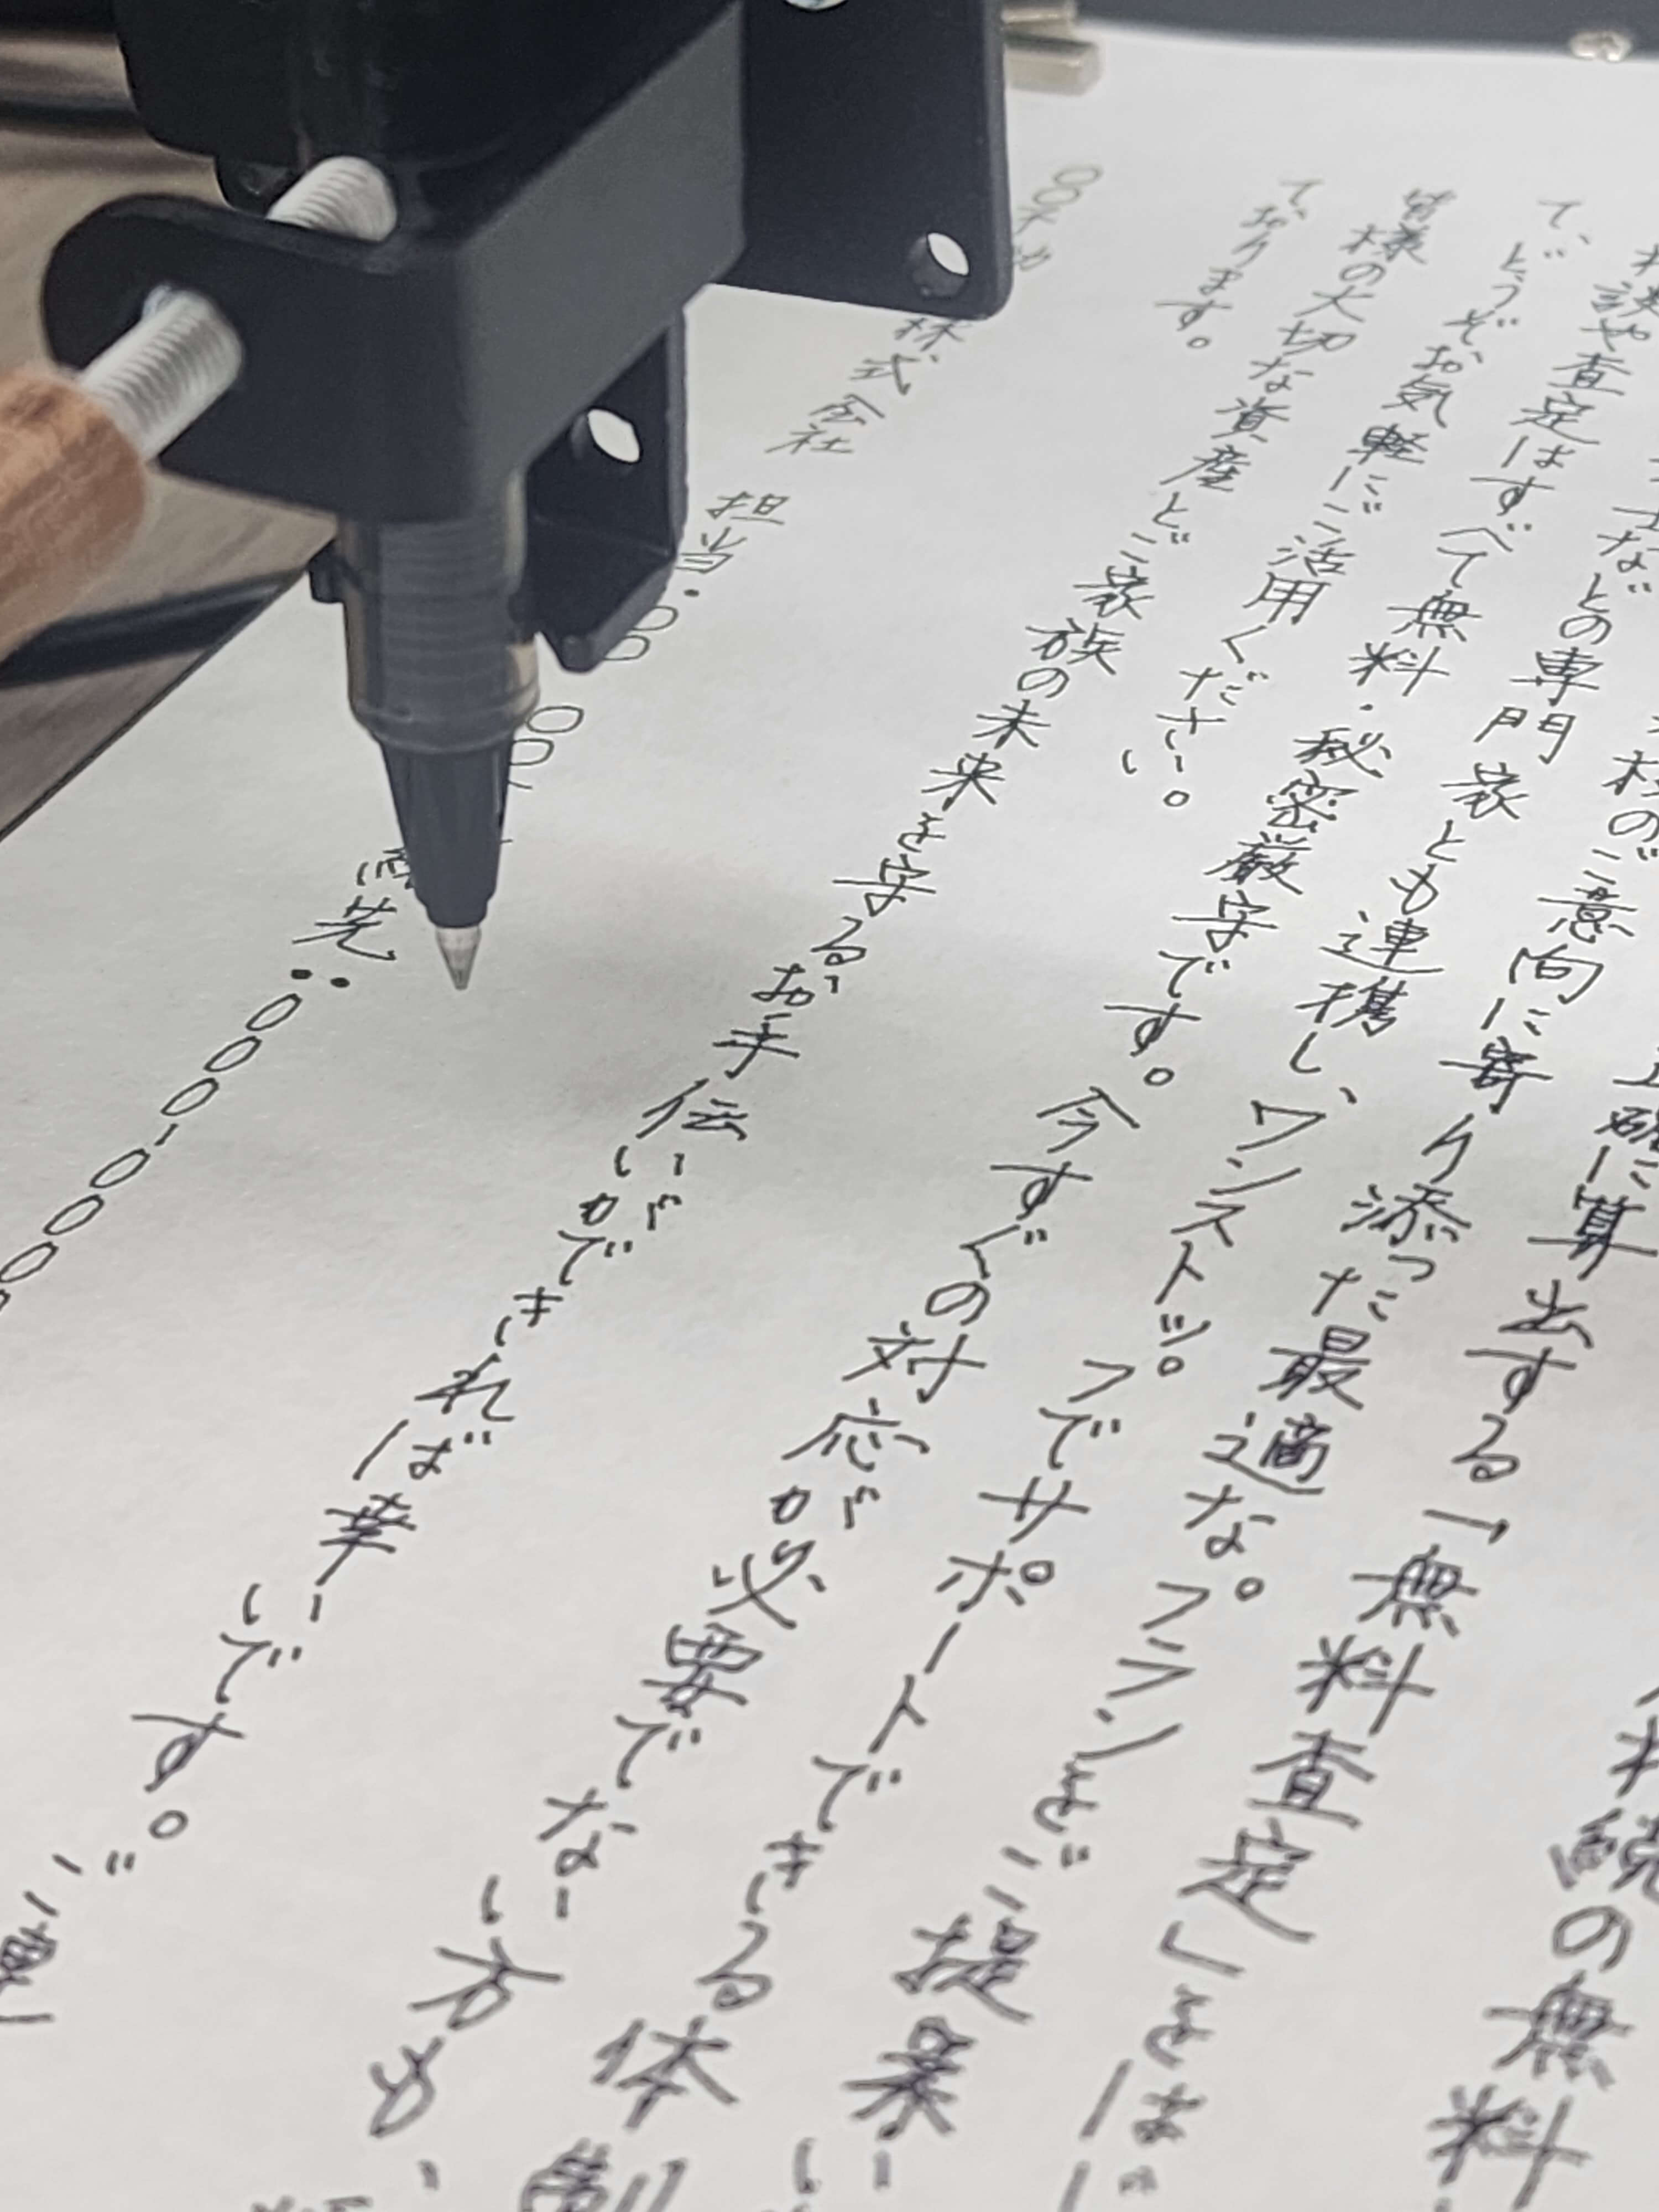 続の無料
正確に算出する「無料査定」をは
のご意向に寄り添った最適なプランをご提案い
士などの専門家とも連携し、ワンストップでサポートできる体制
談や査定はすべて無料・秘密厳守です。今すぐの対応が必要でない方も、
て、どうぞお気軽にご活用ください。
皆様の大切な資産とご家族の未来を守るお手伝いができれば幸いです。ご連
ております。
〇〇不動 株式会社 担当:〇〇 〇〇 絡先:〇〇〇-〇〇〇〇